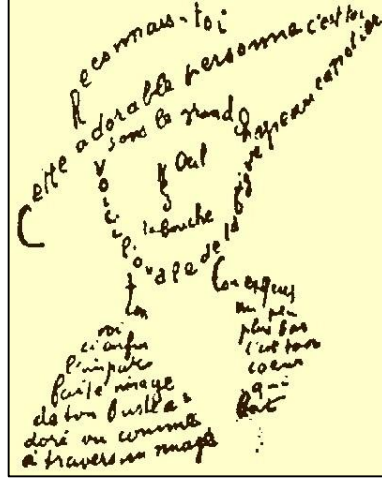 Reconnais-toi
Cette adorable personne c'est toi
sous le grand chapeau canotier
Oeil
Nez
la bouche
Voici l'ovale de ta figure
ton cou exquis
voi
ci enfin
l'impar
faite image
de ton buste a
doré vu comme
à travers un nuage
un peu
plus bas
c'est ton
coeur
qui
bat